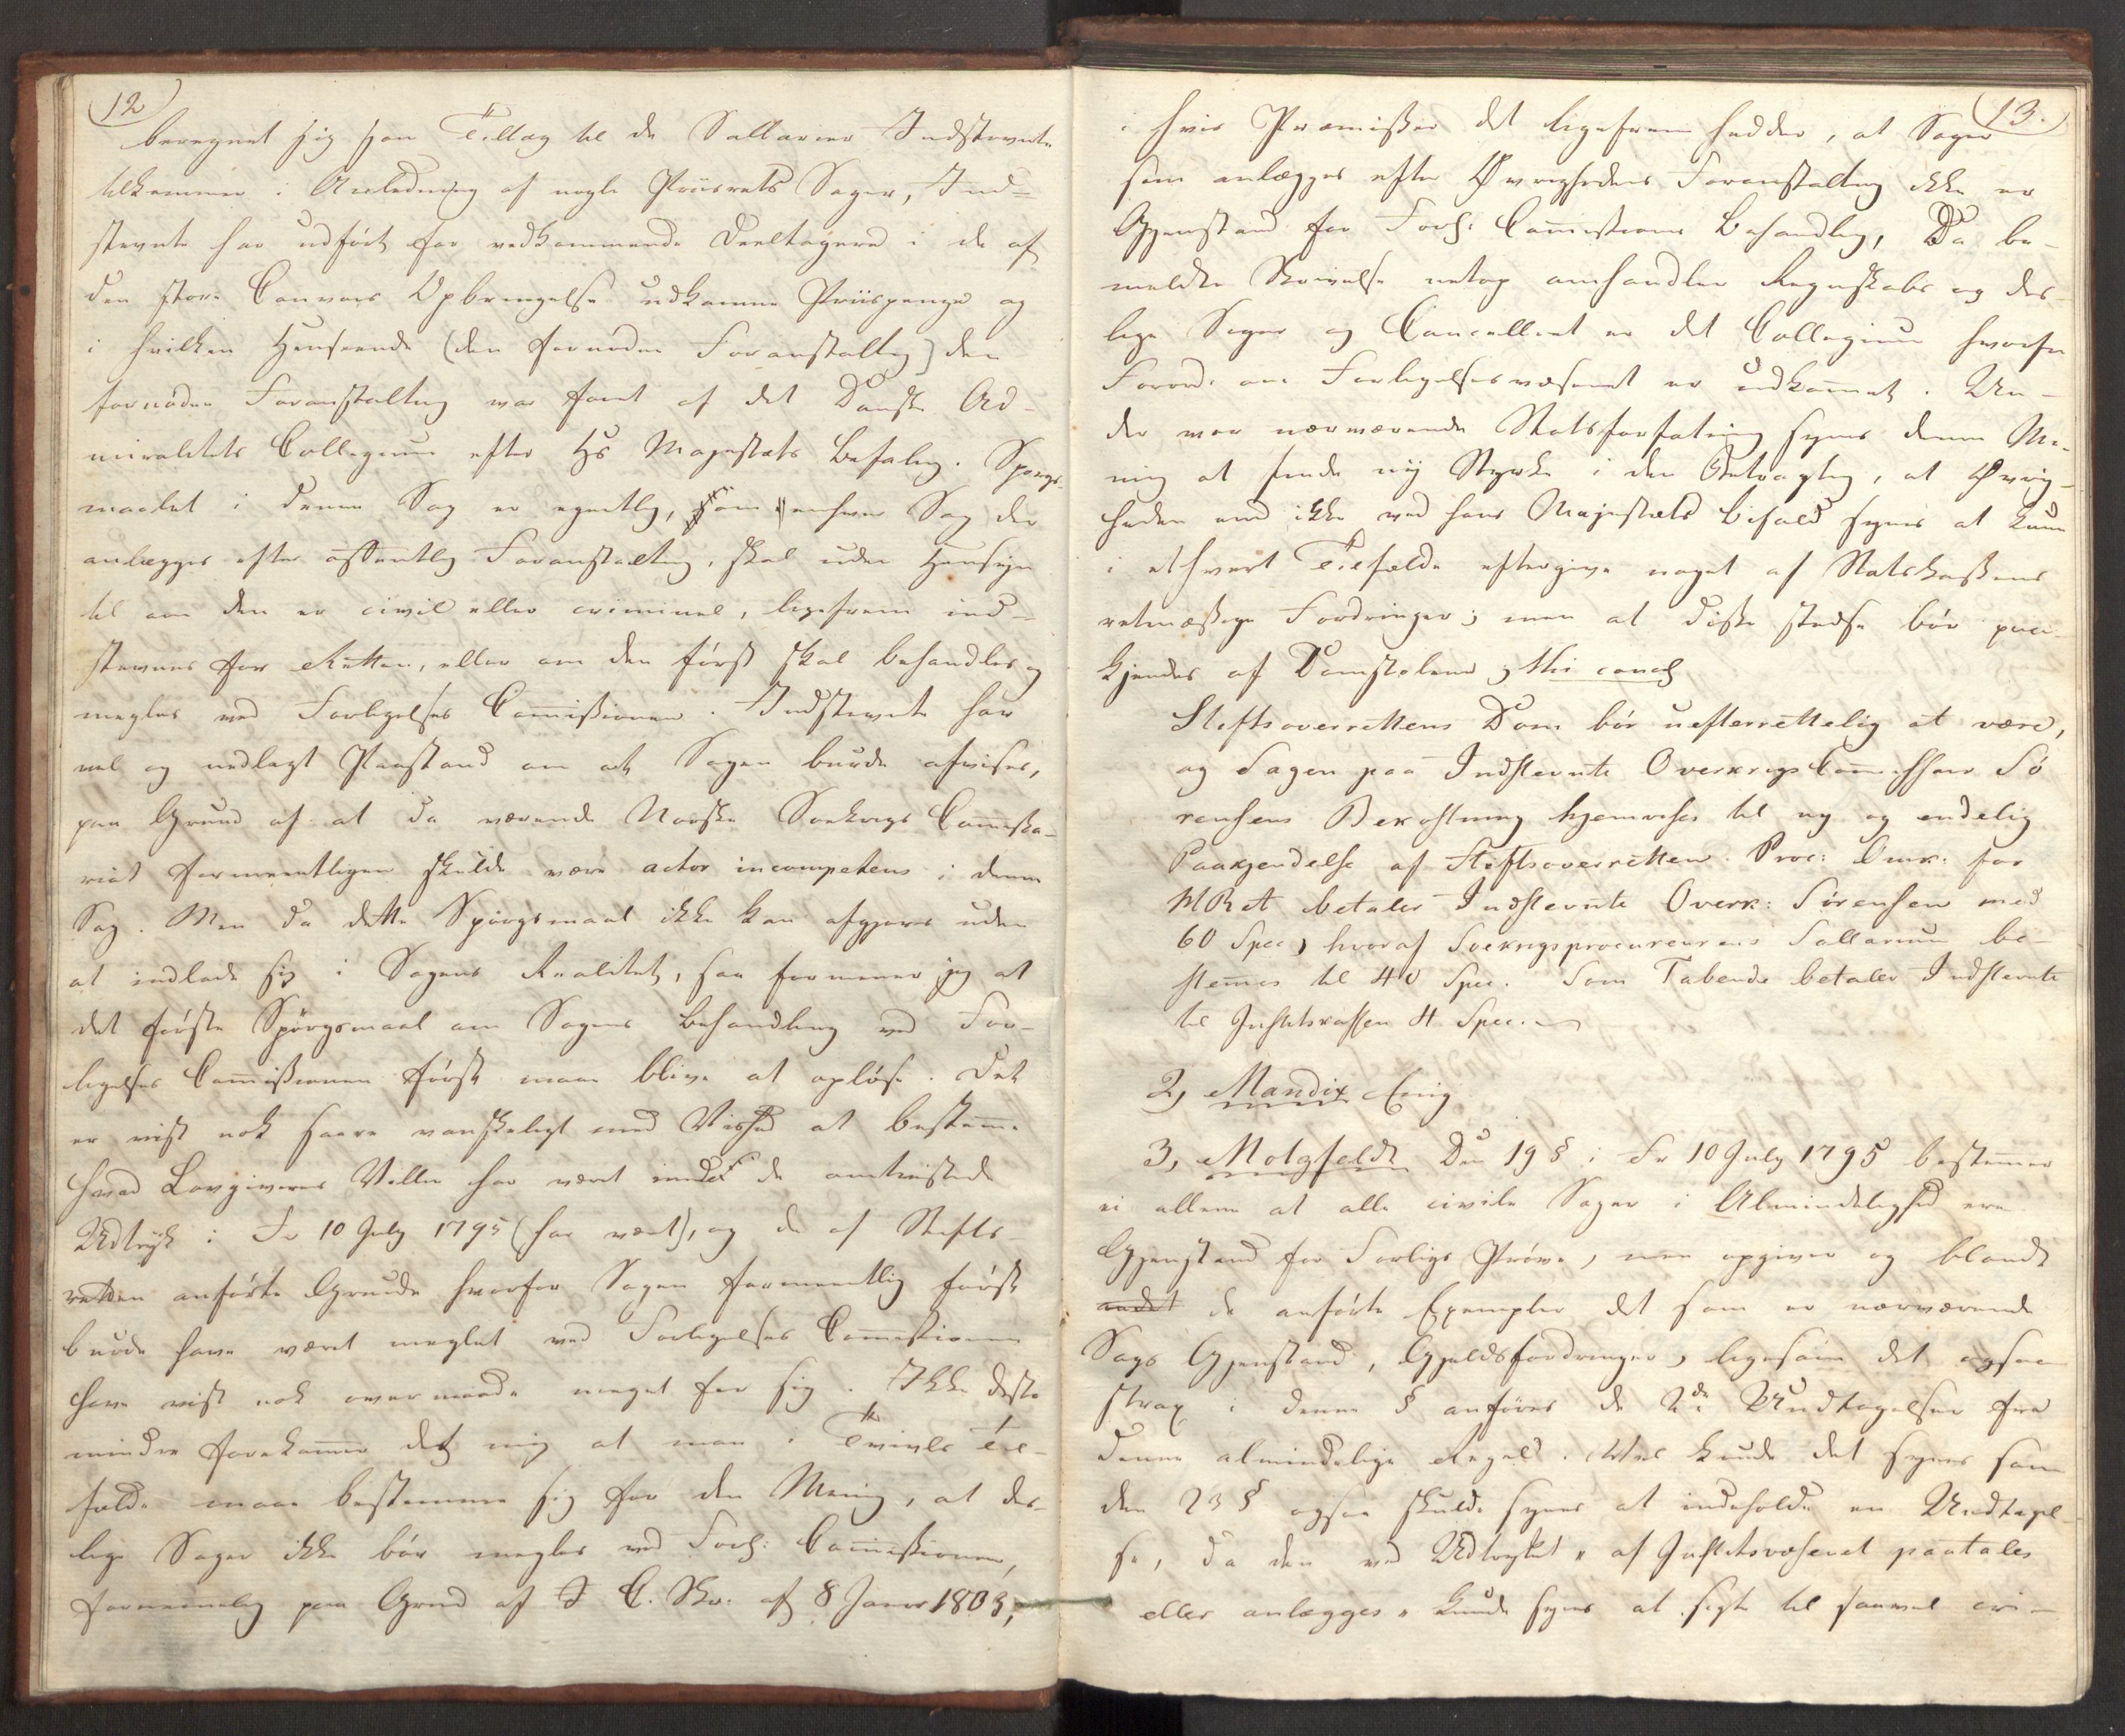 12
beregnet sig som Tillæg til de Sallarier Indstevnte
tilkommer i Anledning af nogle Priisrets Sager, Ind=
stevnte har udført for vedkommende Deeltagere i de af
den store Convois Opbringelse udkomne Priispenge og
i hvilken Henseende (den fornødne Foranstaltng) den
fornødne Foranstaltning var føiet af det Danske Ad-
miralitets Collegium efter Hs Majestæts Befaling. Spørgs-
maalet i denne Sag er egentlig, som enhver Sag der
anlægges efter offentlig Foranstaltning, skal uden Hensyn
til om den er civil eller criminel, ligefrem ind-
stevnes for Retten, eller om den først skal behandles og
megles ved Forligelses Com̄issionen. Indstevnte har
vel og nedlagt Paastand om at Sagen burde afvises,
paa Grund af at da værende Norske Søekrigs Com̄issa-
riat formeentligen skulde være actor incompetens i denne
Sag. Men da dette Spørgsmaal ikke kan afgjøres uden
at indlade sig i Sagens Realitet, saa formener jeg at
det første Spørgsmaal om Sagens Behandling ved For-
ligelses Com̄issionen først maa blive at opløse. Det
er vist nok saare vanskeligt med Vished at bestem̄e
hvad Lovgiverens Villie har været under de omtvistede
Udtryk i Fr 10 July 1795 (har vært), og de af Stifts-
retten anførte Grunde hvorfor Sagen formeentlig først
burde have været meglet ved Forligelses Com̄issionen
have vist nok overmaade meget for sig. Ikke desto
mindre forekom̄er det mig at man i Tvivls Til-
fælde maa bestemme sig for den Mening, at des-
lige Sager ikke bør megles ved Forl: Com̄issionen,
fornemmelig paa Grund af D C. Skr. af 8 Janr 1803,
13.
i hvis Præmisser det ligefrem hedder, at Sager
som anlægges efter Øvrighedens Foranstaltning ikke er
Gjenstand for Forl: Com̄issions Behandling, Da be-
meldte Skrivelse netop omhandler Regnskabs og des-
lige Sager og Cancelliet er det Collegium hvorfra
Forord. om Forligelsesvæsenet er udkom̄et. Un-
der vor nærværende Statsforfatning synes denne Me-
ning at finde ny Styrke i den Betragtning, at Øvrig-
heden end ikke ved hans Majestæts Bifald synes at kunne
i ethvert Tilfælde eftergive noget af Statskassens
retmæssige Fordringer; men at disse stedse bør paa-
kjendes af Domstolene; thi concl
Stiftsoverrettens Dom bör uefterrettelig at være,
og Sagen paa Indstevnte Overkrigs Com̄issair Sö
rensens Bekostning hjemvises til ny og endelig
Paakjendelse af Stiftsoverretten. Proc: Omk: for
HRet betaler Indstevnte Overk: Sörensen med
60 Spec, hvoraf Soekrigsprocureurens Sallarium be-
stem̄es til 40 Spec. Som Tabende betaler Indstevnte
til Justitskassen 4 Spec.
2, Mandix Enig
3, Motzfeldt Den 19 § i Fr 10 July 1795 bestem̄er
ei allene at alle civile Sager i Almindelighed ere
Gjenstand for Forligs Prøve, men opgiver og blandt
andet de anførte Exempler det som er nærværende
Sags Gjenstand, Gjeldsfordringer, ligesom det ogsaa
strax i denne § anføres de 2de Undtagelser fra
denne almindelige Regel. Vel kunde det synes som
den 23 § ogsaa skulde synes at indeholde en Undtagel-
se, da den ved Udtrykket "af Justitsvæsenet paatales
eller anlægges" kunde synes at sigte til saavel cri-